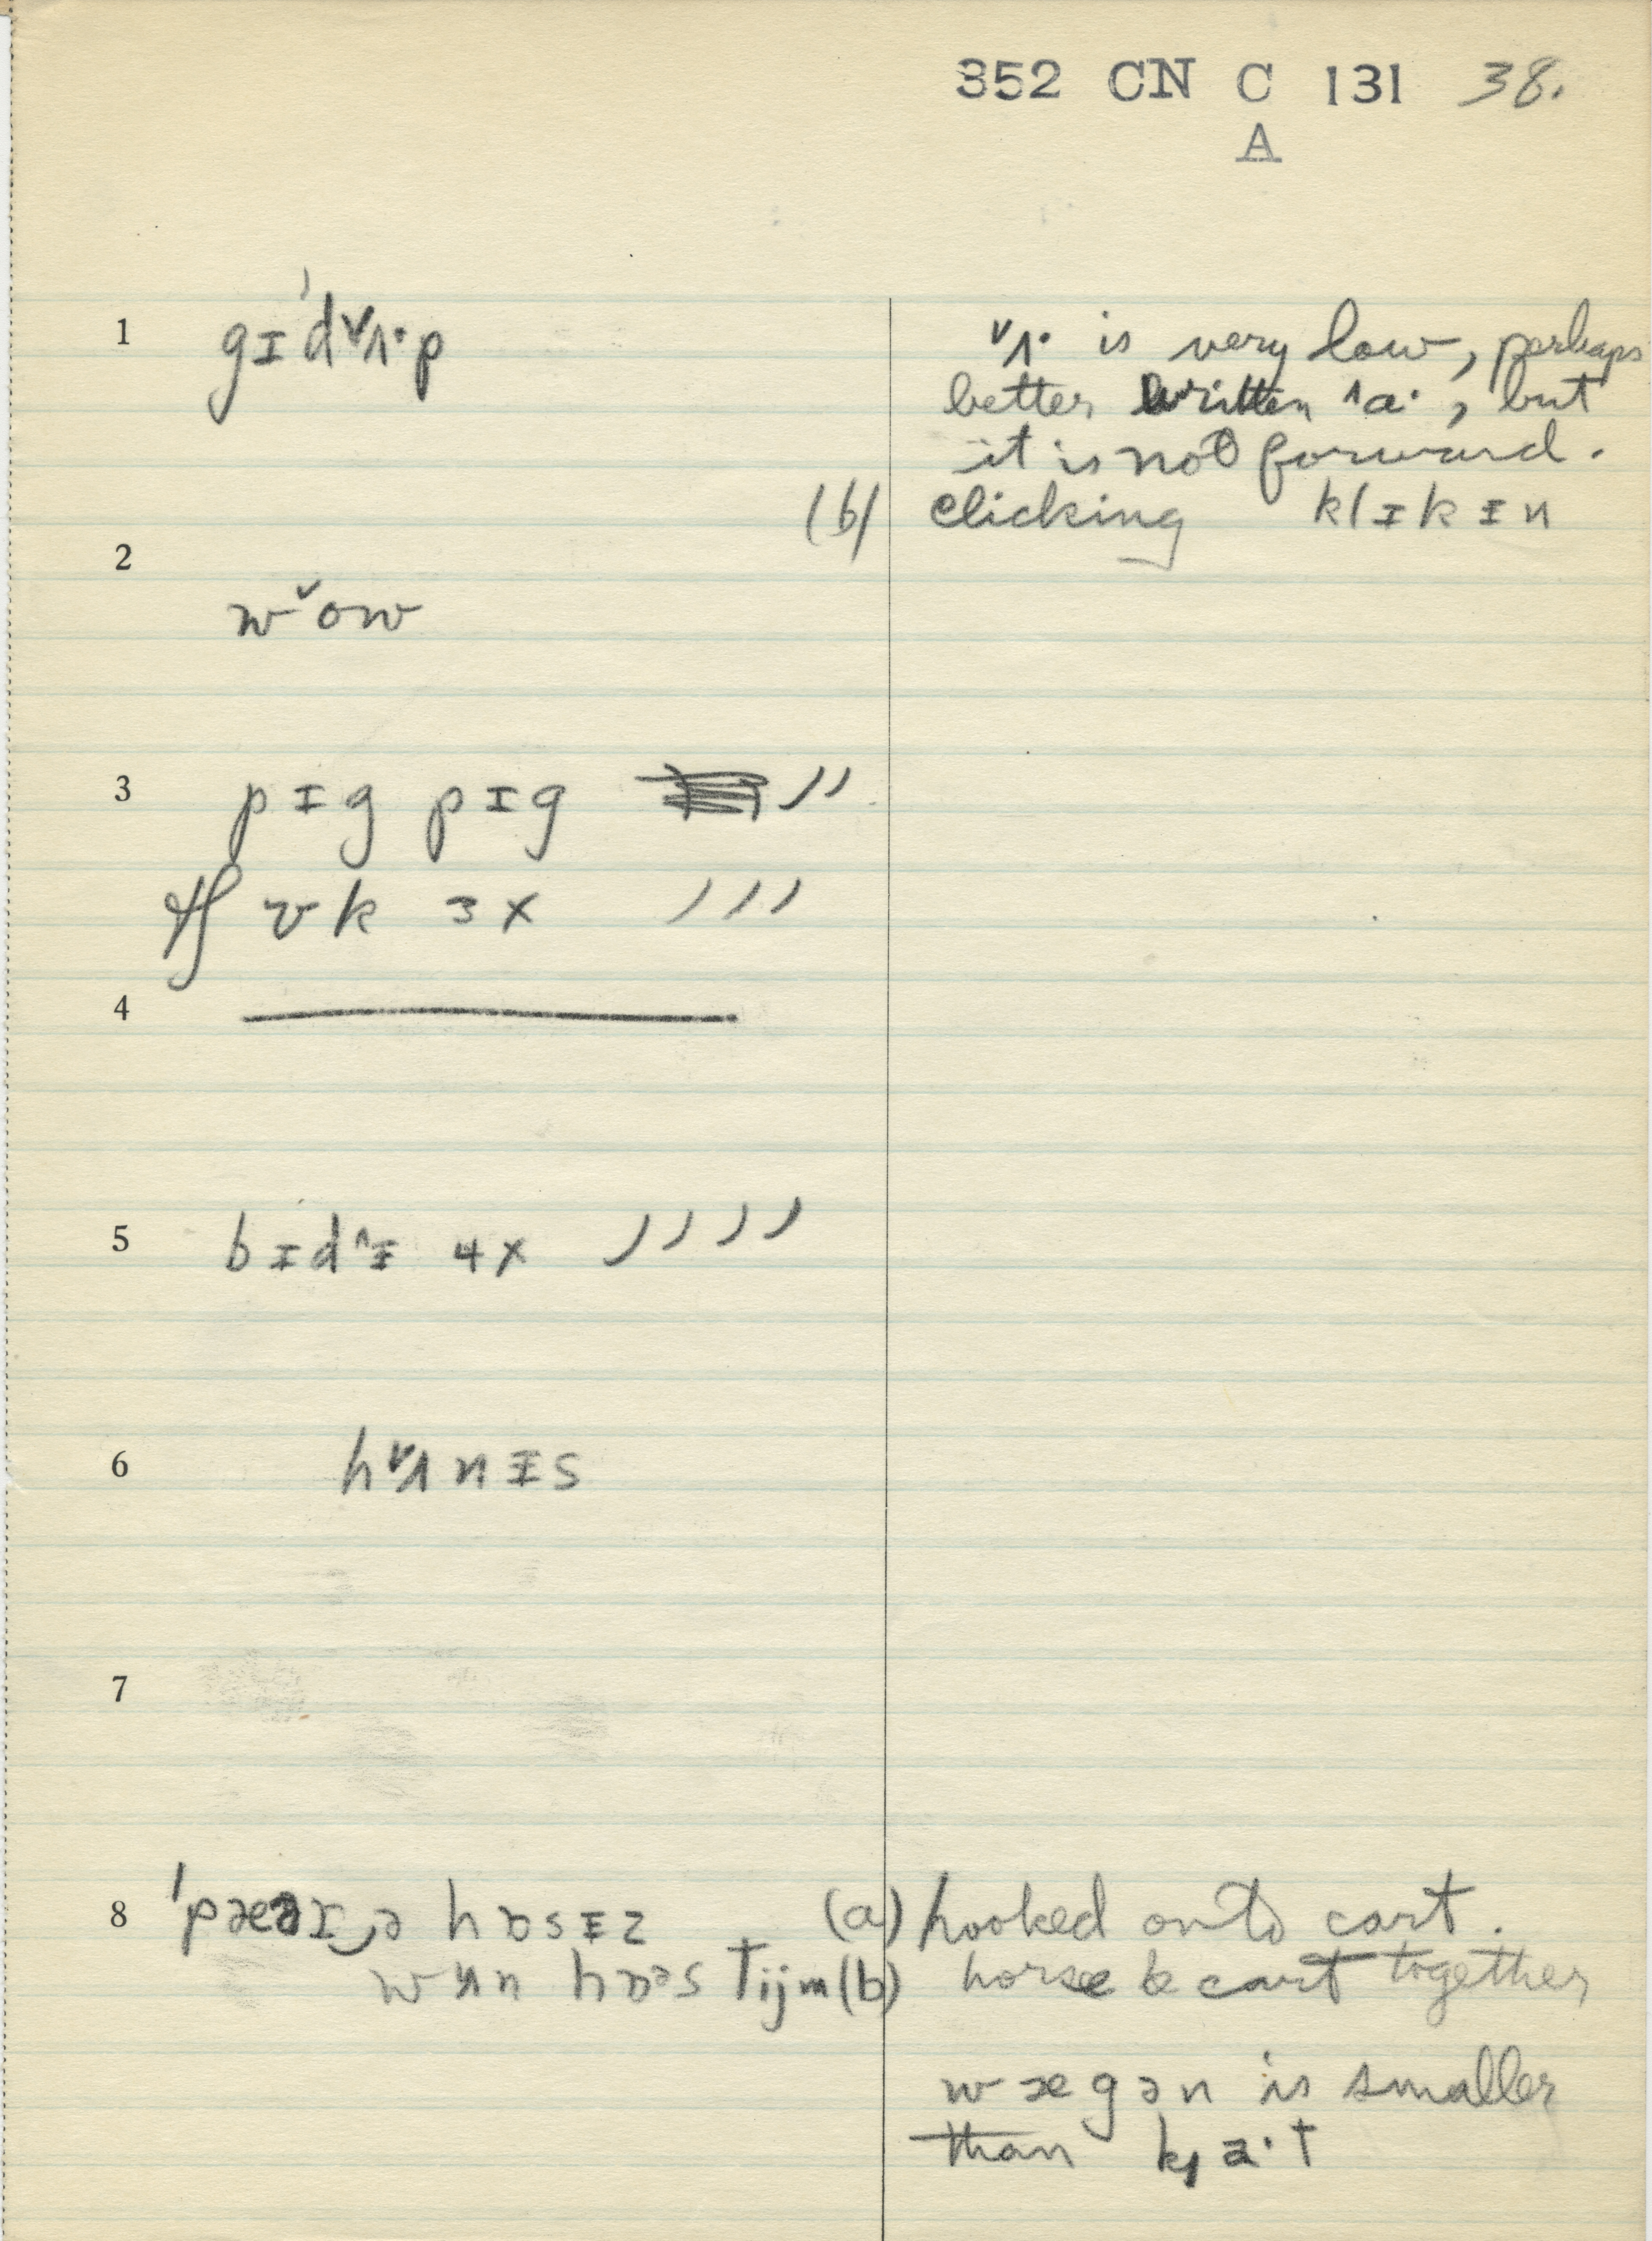 352 CN C 131 38.
A
1 gɪ'd˅ʌ·p
˅ʌ· is very low, perhaps
better written ^a·, but
it is not forward.
(b) clicking klɪkɪn
2
w˅ow
3 pɪg pɪg ››
vk 3x ›››
4
5 bɪd^ɪ 4x ››››
6 h˅ʌnɪs
7
8 (a) hooked onto cart.
(b) horse & cart together
wægən is smaller
than